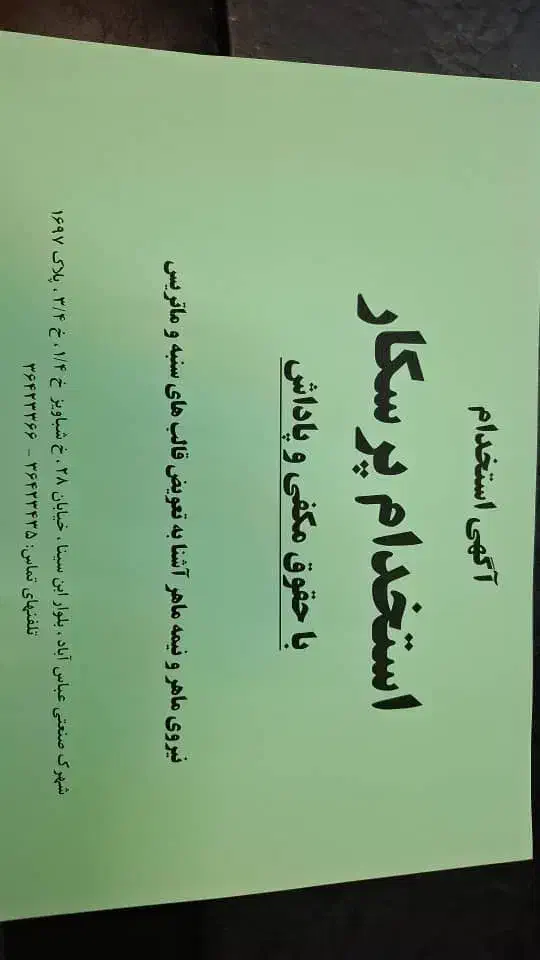 آگهی استخدام
استخدام پرسکار
با حقوق مکفی و پاداش
نیروی ماهر و نیمه ماهر آشنا به تعویض قالب های سنبه و ماتریس
شهرک صنعتی عباس آباد ، بلوار ابن سینا ، خیابان ۲۸ ، خ شباویز خ ۱/۴ ، خ ۳/۴ ، پلاک ۱۶۹۷
تلفنهای تماس: ۳۶۴۲۳۴۳۵ - ۳۶۴۲۳۳۶۶